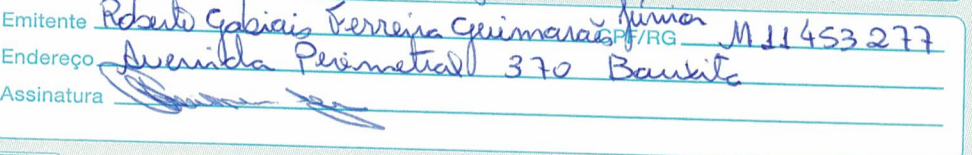 Emitente Roberto Gabiais Ferreira Guimarães Júnior CPF/RG M11453277
Endereço Avenida Perimetral 370 Bauxita
Assinatura